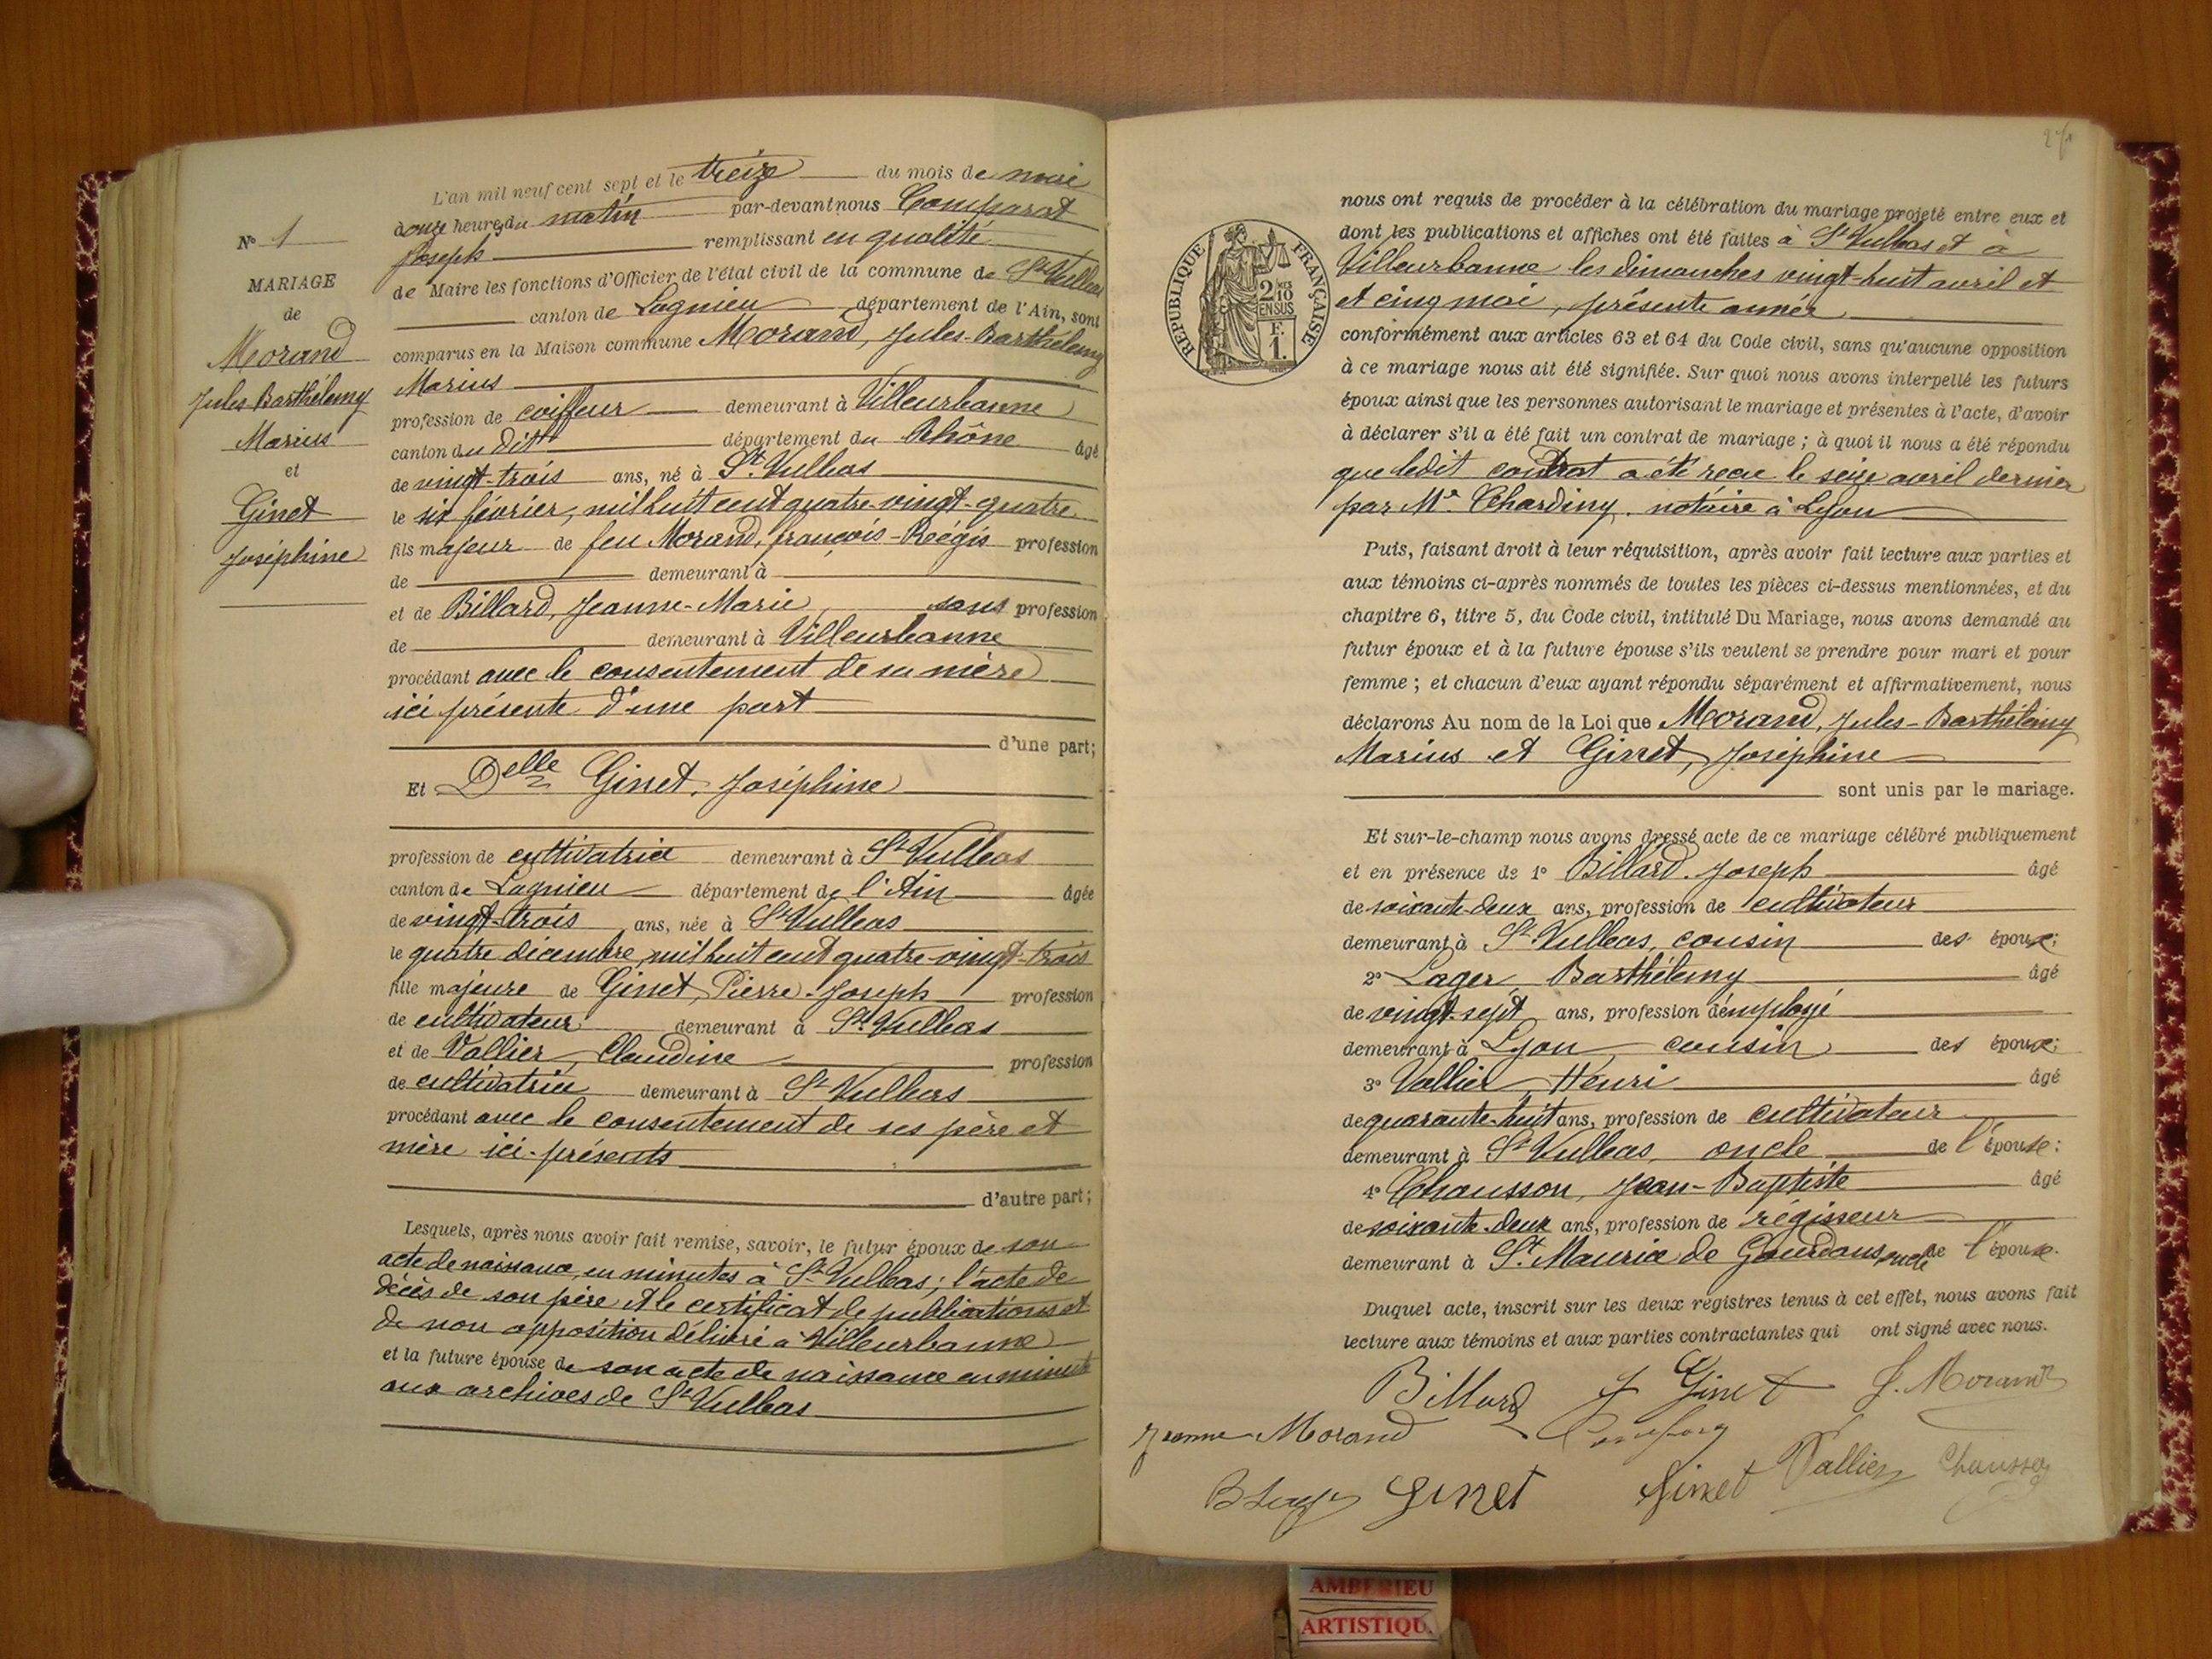 N° 1
MARIAGE
de
Morand
Jules Barthélemy
Marius
et
Ginet
Joséphine
L'an mil neuf cent sept et le treize du mois de mai
à onze heures du matin par-devant nous Comparat
Joseph remplissant en qualité
de Maire les fonctions d'Officier de l'état civil de la commune de St Vulbas
canton de Lagnieu département de l'Ain, sont
comparus en la Maison commune Morand, Jules-Barthélemy
Marius
profession de coiffeur demeurant à Villeurbanne
canton du dit département du Rhône âgé
de vingt-trois ans, né à St Vulbas
le six février, mil huit cent quatre-vingt-quatre
fils majeur de feu Morand, françois-Régis profession
de demeurant à
et de Billard, Jeanne-Marie, sans profession
de demeurant à Villeurbanne
procédant avec le consentement de sa mère
ici présente d'une part
d'une part;
Et Delle Ginet, Joséphine
profession de cultivatrice demeurant à St Vulbas
canton de Lagnieu département de l'Ain âgée
de vingt-trois ans, née à St Vulbas
le quatre décembre, mil huit cent quatre-vingt-trois
fille majeure de Ginet, Pierre-Joseph profession
de cultivateur demeurant à St Vulbas
et de Vallier, Claudine profession
de cultivatrice demeurant à St Vulbas
procédant avec le consentement de ses père et
mère ici-présents
d'autre part;
Lesquels, après nous avoir fait remise, savoir, le futur époux de son
acte de naissance, en minutes à St Vulbas; l'acte de
décès de son père et le certificat de publications et
de non opposition délivré à Villeurbanne
et la future épouse de son acte de naissance en minute
aux archives de St Vulbas
RÉPUBLIQUE FRANÇAISE
2/10
EN SUS
F.
1.
nous ont requis de procéder à la célébration du mariage projeté entre eux et
dont les publications et affiches ont été faites à St Vulbas et à
Villeurbanne les dimanches vingt-huit avril et
et cinq mai, présente année
conformément aux articles 63 et 64 du Code civil, sans qu'aucune opposition
à ce mariage nous ait été signifiée. Sur quoi nous avons interpellé les futurs
époux ainsi que les personnes autorisant le mariage et présentes à l'acte, d'avoir
à déclarer s'il a été fait un contrat de mariage ; à quoi il nous a été répondu
que ledit contrat a été reçu le seize avril dernier
par Me Chardiny, notaire à Lyon
Puis, faisant droit à leur réquisition, après avoir fait lecture aux parties et
aux témoins ci-après nommés de toutes les pièces ci-dessus mentionnées, et du
chapitre 6, titre 5, du Code civil, intitulé Du Mariage, nous avons demandé au
futur époux et à la future épouse s'ils veulent se prendre pour mari et pour
femme ; et chacun d'eux ayant répondu séparément et affirmativement, nous
déclarons Au nom de la Loi que Morand, Jules-Barthélemy
Marius et Ginet, Joséphine
sont unis par le mariage.
Et sur-le-champ nous avons dressé acte de ce mariage célébré publiquement
et en présence de 1° Billard. Joseph âgé
de soixante-deux ans, profession de cultivateur
demeurant à St Vulbas, cousin des époux;
2° Lager, Barthélemy âgé
de vingt-sept ans, profession d'employé
demeurant à Lyon, cousin des époux;
3° Vallier, Henri âgé
de quarante-huit ans, profession de cultivateur
demeurant à St Vulbas, oncle de l'épouse;
4° Chausson, Jean-Baptiste âgé
de soixante-deux ans, profession de régisseur
demeurant à St. Maurice de Gourdans, oncle de l'épouse.
Duquel acte, inscrit sur les deux registres tenus à cet effet, nous avons fait
lecture aux témoins et aux parties contractantes qui ont signé avec nous.
Billard J Ginet J. Morand
Jeanne Morand
Ginet Ginet Vallier Chausson
AMBERIEU
ARTISTIQU